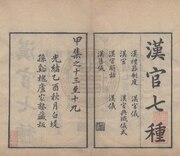 漢官七種
漢禮器制度 漢官儀
漢官 漢官典職儀式
漢官解詁 漢儀
漢舊儀
甲集之十三至十九
光緒乙酉秋月白堤
孫谿槐廬家塾藏板